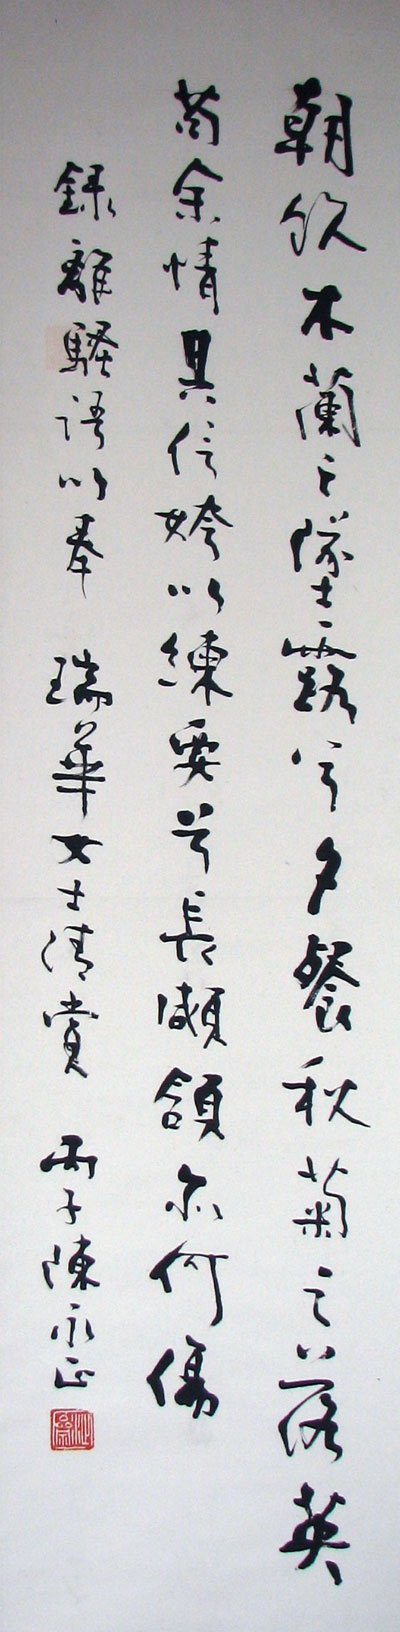 朝飲木蘭之墜露兮夕餐秋菊之落英
苟余情其信姱以練要兮長顑頷亦何傷
錄離騷語以奉 瑞華女士清賞 丙子陳永正